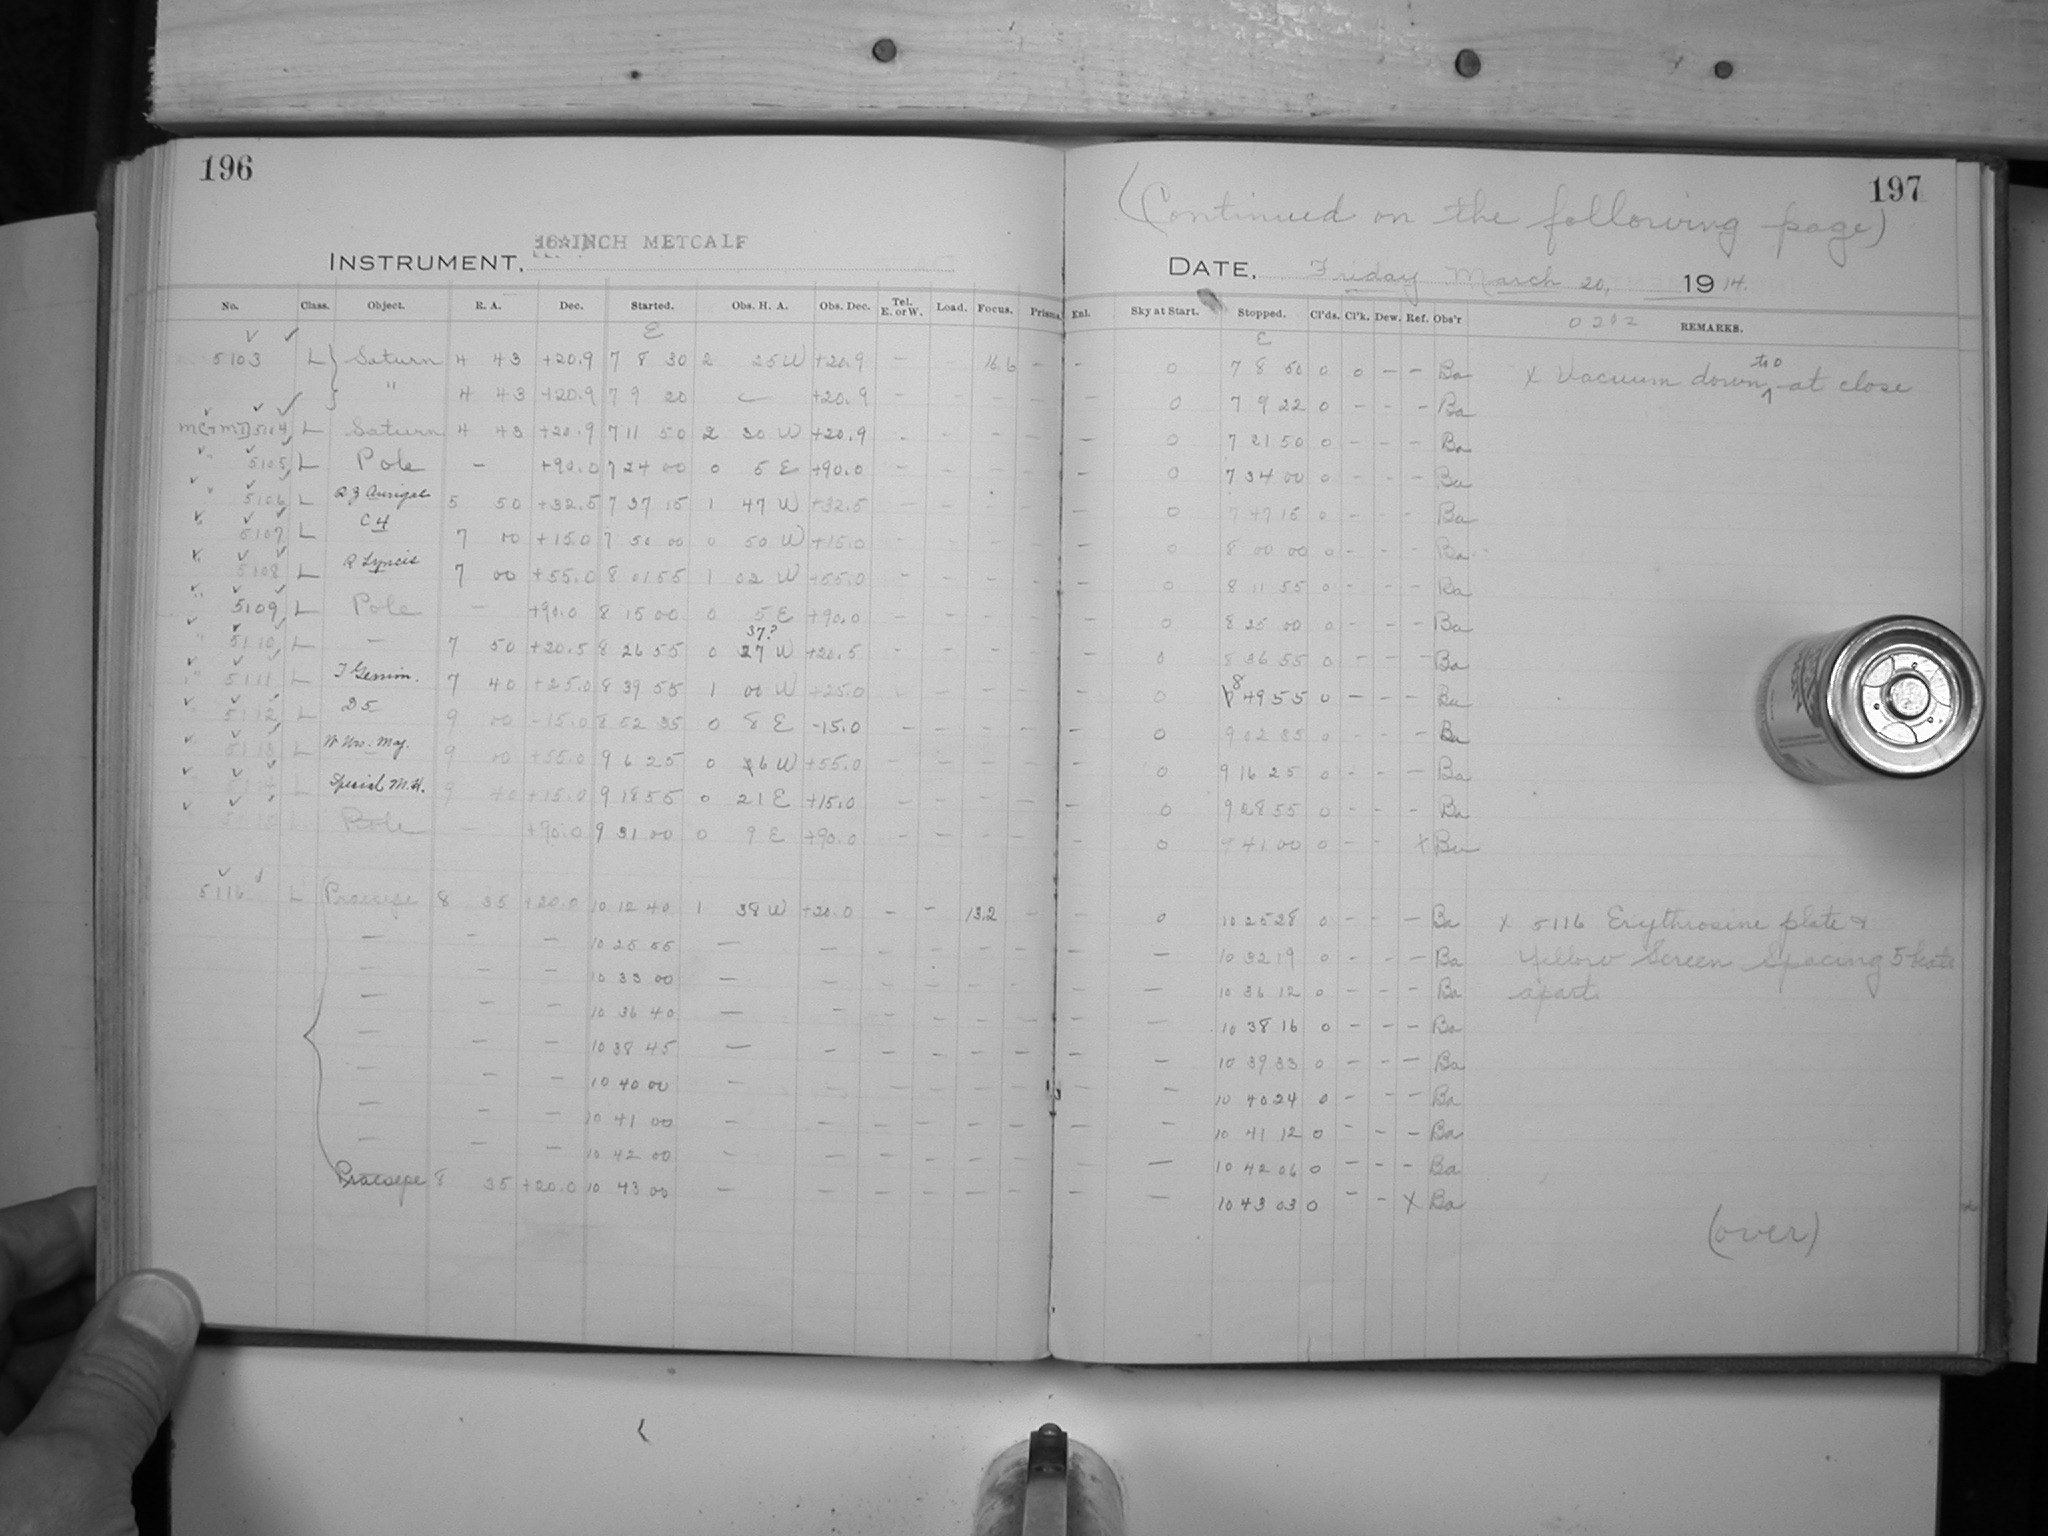 196
16 INCH METCALF
INSTRUMENT.
No. Class. Object. R. A. Dec. Started. Obs. H. A. Obs. Dec. Tel. E. or W. Load. Focus. Prisms.
E
5103 L Saturn 4 43 +20.9 7 8 30 2 25 W +20.9 – – 16.6 –
" 4 43 +20.9 7 9 20 – +20.9 – – – –
5104 L Saturn 4 43 +20.9 7 11 50 2 30 W +20.9 – – – –
" 5105 L Pole – +90.0 7 24 00 0 5 E +90.0 – – – –
" 5106 L RZ Aurigae 5 50 +32.5 7 37 15 1 47 W +32.5 – – – –
" 5107 L C4 7 00 +15.0 7 50 00 0 50 W +15.0 – – – –
" 5108 L R Lyncis 7 00 +55.0 8 01 55 1 02 W +55.0 – – – –
" 5109 L Pole – +90.0 8 15 00 0 5 E +90.0 – – – –
37?
" 5110 L – 7 50 +20.5 8 26 55 0 27 W +20.5 – – – –
" 5111 L T Gemin. 7 40 +25.0 8 39 55 1 00 W +25.0 – – – –
" 5112 L D5 9 00 -15.0 8 52 35 0 8 E -15.0 – – – –
5113 L W Urs. Maj. 9 00 +55.0 9 6 25 0 6 W +55.0 – – – –
5114 L Special M.H. 9 40 +15.0 9 18 55 0 21 E +15.0 – – – –
5115 L Pole – +90.0 9 31 00 0 9 E +90.0 – – – –
5116 L Praesepe 8 35 +20.0 10 12 40 1 38 W +20.0 – – 13.2 –
– – – 10 25 55 – – – – – –
– – – 10 33 00 – – – – – –
– – – 10 36 40 – – – – – –
– – – 10 38 45 – – – – – –
– – – 10 40 00 – – – – – –
– – – 10 41 00 – – – – – –
– – – 10 42 00 – – – – – –
Praesepe 8 35 +20.0 10 43 00 – – – – – –
197
(Continued on the following page)
DATE. Friday March 20, 1914.
Enl. Sky at Start. Stopped. Cl'ds. Cl'k. Dew. Ref. Obs'r REMARKS.
E
– 0 7 8 50 0 0 – – Ba x Vacuum down to 0 at close
– 0 7 9 22 0 – – – Ba
– 0 7 21 50 0 – – – Ba
– 0 7 34 00 0 – – – Ba
– 0 7 47 15 0 – – – Ba
– 0 8 00 00 0 – – – Ba
– 0 8 11 55 0 – – – Ba
– 0 8 25 00 0 – – – Ba
– 0 8 36 55 0 – – – Ba
– 0 8 49 55 0 – – – Ba
– 0 9 02 35 0 – – – Ba
– 0 9 16 25 0 – – – Ba
– 0 9 28 55 0 – – – Ba
– 0 9 41 00 0 – – x Ba
– 0 10 25 28 0 – – – Ba x 5116 Erythrosine plate &
– – 10 32 19 0 – – – Ba Yellow Screen Spacing 5
– – 10 36 12 0 – – – Ba apart.
– – 10 38 16 0 – – – Ba
– – 10 39 33 0 – – – Ba
– – 10 40 24 0 – – – Ba
– – 10 41 12 0 – – – Ba
– – 10 42 06 0 – – – Ba
– – 10 43 03 0 – – x Ba
(over)